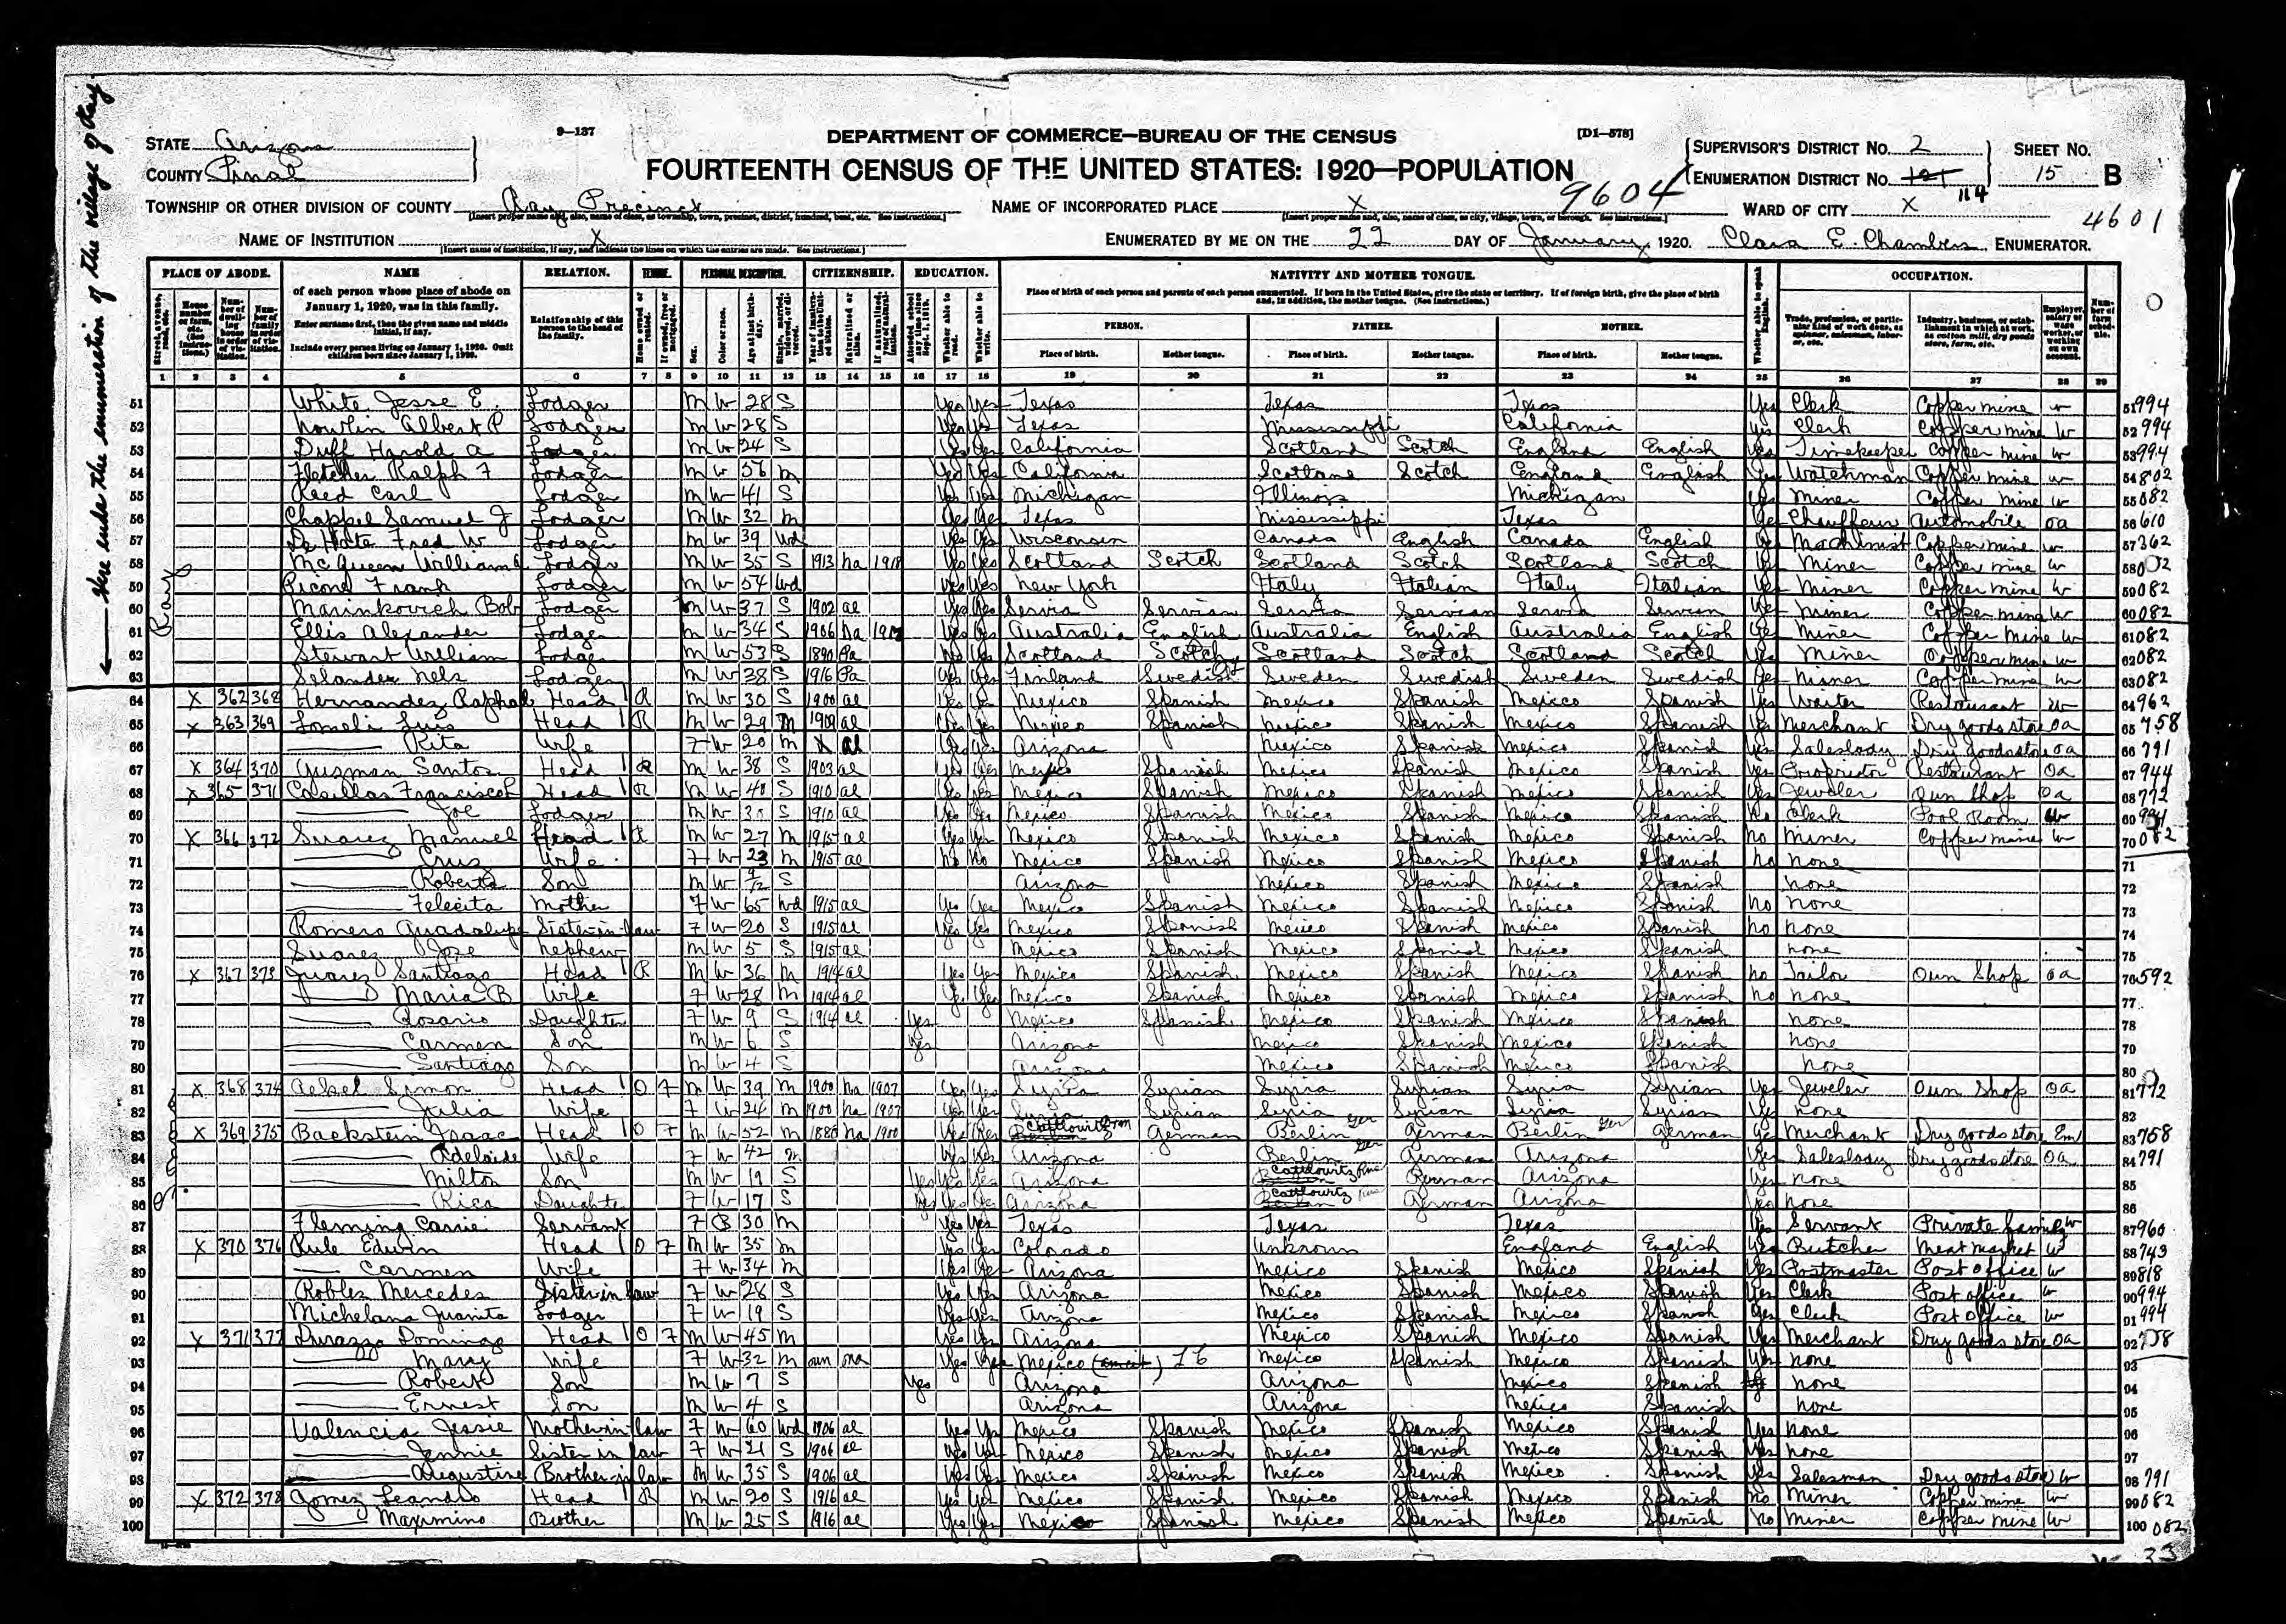 ← Here ends the enumeration of the village of Ray.
9—137
DEPARTMENT OF COMMERCE—BUREAU OF THE CENSUS
[D1—578]
FOURTEENTH CENSUS OF THE UNITED STATES: 1920—POPULATION
STATE Arizona
COUNTY Pinal
SUPERVISOR'S DISTRICT No. 2
ENUMERATION DISTRICT No. 114
SHEET No. 15 B
9604
4601
TOWNSHIP OR OTHER DIVISION OF COUNTY Ray Precinct
NAME OF INCORPORATED PLACE X
WARD OF CITY X
NAME OF INSTITUTION X
ENUMERATED BY ME ON THE 22 DAY OF January, 1920. Clara E. Chambers ENUMERATOR.
PLACE OF ABODE. NAME RELATION. TENURE. PERSONAL DESCRIPTION. CITIZENSHIP. EDUCATION. NATIVITY AND MOTHER TONGUE. OCCUPATION.
of each person whose place of abode on January 1, 1920, was in this family.
Enter surname first, then the given name and middle initial, if any.
Include every person living on January 1, 1920. Omit children born since January 1, 1920.
Relationship of this person to the head of the family.
Place of birth of each person and parents of each person enumerated. If born in the United States, give the state or territory. If of foreign birth, give the place of birth and, in addition, the mother tongue. (See instructions.)
PERSON. FATHER. MOTHER.
Place of birth. Mother tongue. Place of birth. Mother tongue. Place of birth. Mother tongue.
1 2 3 4 5 6 7 8 9 10 11 12 13 14 15 16 17 18 19 20 21 22 23 24 25 26 27 28 29
51 White Jesse E. Lodger M W 28 S Yes Yes Texas Texas Texas Yes Clerk Copper mine w 994
52 Nowlin Albert P Lodger M W 28 S Yes Yes Texas Mississippi California Yes Clerk Copper mine w 994
53 Duff Harold A Lodger M W 24 S Yes Yes California Scotland Scotch England English Yes Timekeeper Copper mine w 994
54 Fletcher Ralph F Lodger M W 56 M Yes Yes California Scotland Scotch England English Yes Watchman Copper mine w 802
55 Reed Carl Lodger M W 41 S Yes Yes Michigan Illinois Michigan Yes Miner Copper mine w 082
56 Chappel Samuel J Lodger M W 32 M Yes Yes Texas Mississippi Texas Yes Chauffeur Automobile oa 610
57 Fred W Lodger M W 39 Wd Yes Yes Wisconsin Canada English Canada English Yes Machinist Copper mine w 362
58 McQueen William Lodger M W 35 S 1913 na 1918 Yes Yes Scotland Scotch Scotland Scotch Scotland Scotch Yes Miner Copper mine w
59 Picone Frank Lodger M W 54 Wd Yes Yes New York Italy Italian Italy Italian Yes Miner Copper mine w 082
60 Marinkovich Bob Lodger M W 37 S 1902 al Yes Yes Servia Servian Servia Servian Servia Servian Yes Miner Copper mine w 082
61 Ellis Alexander Lodger M W 34 S 1906 Na Yes Yes Australia English Australia English Australia English Yes Miner Copper mine w 082
62 Stewart William Lodger M W 53 S 1890 Pa Scotland Scotch Scotland Scotch Scotland Scotch Yes Miner Copper mine w 082
63 Selander Nels Lodger M W 38 S 1916 Pa Yes Yes Finland Swedish Sweden Swedish Sweden Swedish Yes Miner Copper mine w 082
64 X 362 368 Hernandez Raphael Head R M W 30 S 1900 al Yes Yes Mexico Spanish Mexico Spanish Mexico Spanish Yes Waiter Restaurant w 962
65 X 363 369 Lomeli Luis Head R M W 29 M 1909 al Yes Yes Mexico Spanish Mexico Spanish Mexico Spanish Yes Merchant Dry goods store oa 758
66 Rita Wife F W 20 M X al Yes Yes Arizona Mexico Spanish Mexico Spanish Yes Saleslady Dry goods store oa 791
67 X 364 370 Guzman Santos Head R M W 38 S 1903 al Yes Yes Mexico Spanish Mexico Spanish Mexico Spanish Yes Proprietor Restaurant oa 944
68 X 365 371 Casillas Francisco Head R M W 40 S 1910 al Yes Yes Mexico Spanish Mexico Spanish Mexico Spanish Yes Jeweler Own Shop oa 772
69 Joe Lodger M W S 1910 al Yes Yes Mexico Spanish Mexico Spanish Mexico Spanish No Clerk Pool Room w
70 X 366 372 Suarez Manuel Head R M W 27 M 1915 al Yes Yes Mexico Spanish Mexico Spanish Mexico Spanish no Miner Copper mine w 082
71 Cruz Wife F W 23 M 1915 al No No Mexico Spanish Mexico Spanish Mexico Spanish no none
72 Roberto Son M W 9/12 S Arizona Mexico Spanish Mexico Spanish none
73 Felecita Mother F W 65 Wd 1915 al Yes Yes Mexico Spanish Mexico Spanish Mexico Spanish no none
74 Romero Guadalupe Sister-in-law F W 20 S 1915 al Yes Yes Mexico Spanish Mexico Spanish Mexico Spanish no none
75 Suarez Jose Nephew M W 5 S 1915 al Mexico Spanish Mexico Spanish Mexico Spanish none
76 X 367 373 Juarez Santiago Head R M W 36 M 1914 al Yes Yes Mexico Spanish Mexico Spanish Mexico Spanish no Tailor Own Shop oa 592
77 Maria B Wife F W 28 M 1914 al Yes Yes Mexico Spanish Mexico Spanish Mexico Spanish no none
78 Rosario Daughter F W 9 S 1914 al Yes Mexico Spanish Mexico Spanish Mexico Spanish none
79 Carmen Son M W 6 S Yes Arizona Mexico Spanish Mexico Spanish none
80 Santiago Son M W 4 S Arizona Mexico Spanish Mexico Spanish none
81 X 368 374 Simon Head O F M W 39 M 1900 na 1907 Yes Yes Syria Syrian Syria Syrian Syria Syrian Yes Jeweler Own Shop oa 772
82 Julia Wife F W 24 M 1900 na 1907 Yes Yes Syria Syrian Syria Syrian Syria Syrian Yes none
83 X 369 375 Backstein Isaac Head O F M W 52 M 1880 na 1900 Yes Yes German Berlin Ger German Berlin Ger German Yes Merchant Dry goods store Em 758
84 Adelaide Wife F W 42 M Yes Yes Arizona Berlin Ger German Arizona Yes Saleslady Dry goods store oa 791
85 Milton Son M W 19 S Yes Yes Yes Arizona German Arizona Yes none
86 Rica Daughter F W 17 S Yes Yes Yes Arizona German Arizona Yes none
87 Fleming Carrie Servant F B 30 M Yes Yes Texas Texas Texas Yes Servant Private family w 960
88 X 370 376 Rule Edwin Head O F M W 35 M Yes Yes Colorado Unknown England English Yes Butcher Meat market w 743
89 Carmen Wife F W 34 M Yes Yes Arizona Mexico Spanish Mexico Spanish Yes Postmaster Post office w 818
90 Robles Mercedes Sister in law F W 28 S Yes Yes Arizona Mexico Spanish Mexico Spanish Yes Clerk Post office w 994
91 Michelana Juanita Lodger F W 19 S Yes Yes Arizona Mexico Spanish Mexico Spanish Yes Clerk Post Office w 994
92 X 371 377 Durazzo Domingo Head O F M W 45 M Yes Yes Arizona Mexico Spanish Mexico Spanish Yes Merchant Dry goods store oa
93 Mary Wife F W 32 M un na Yes Yes Mexico Mexico Spanish Mexico Spanish Yes none
94 Robert Son M W 7 S Yes Arizona Arizona Mexico Spanish none
95 Ernest Son M W 4 S Arizona Arizona Mexico Spanish none
96 Valencia Jessie Mother in law F W 60 Wd 1906 al Yes Yes Mexico Spanish Mexico Spanish Mexico Spanish Yes none
97 Jennie Sister in law F W 21 S 1906 al Yes Yes Mexico Spanish Mexico Spanish Mexico Spanish Yes none
98 Augustine Brother in law M W 35 S 1906 al Yes Yes Mexico Spanish Mexico Spanish Mexico Spanish Yes Salesman Dry goods store w 791
99 X 372 378 Gomez Leandro Head R M W 20 S 1916 al Yes Yes Mexico Spanish Mexico Spanish Mexico Spanish no Miner Copper mine w 082
100 Maximino Brother M W 25 S 1916 al Yes Yes Mexico Spanish Mexico Spanish Mexico Spanish No Miner Copper mine w 082